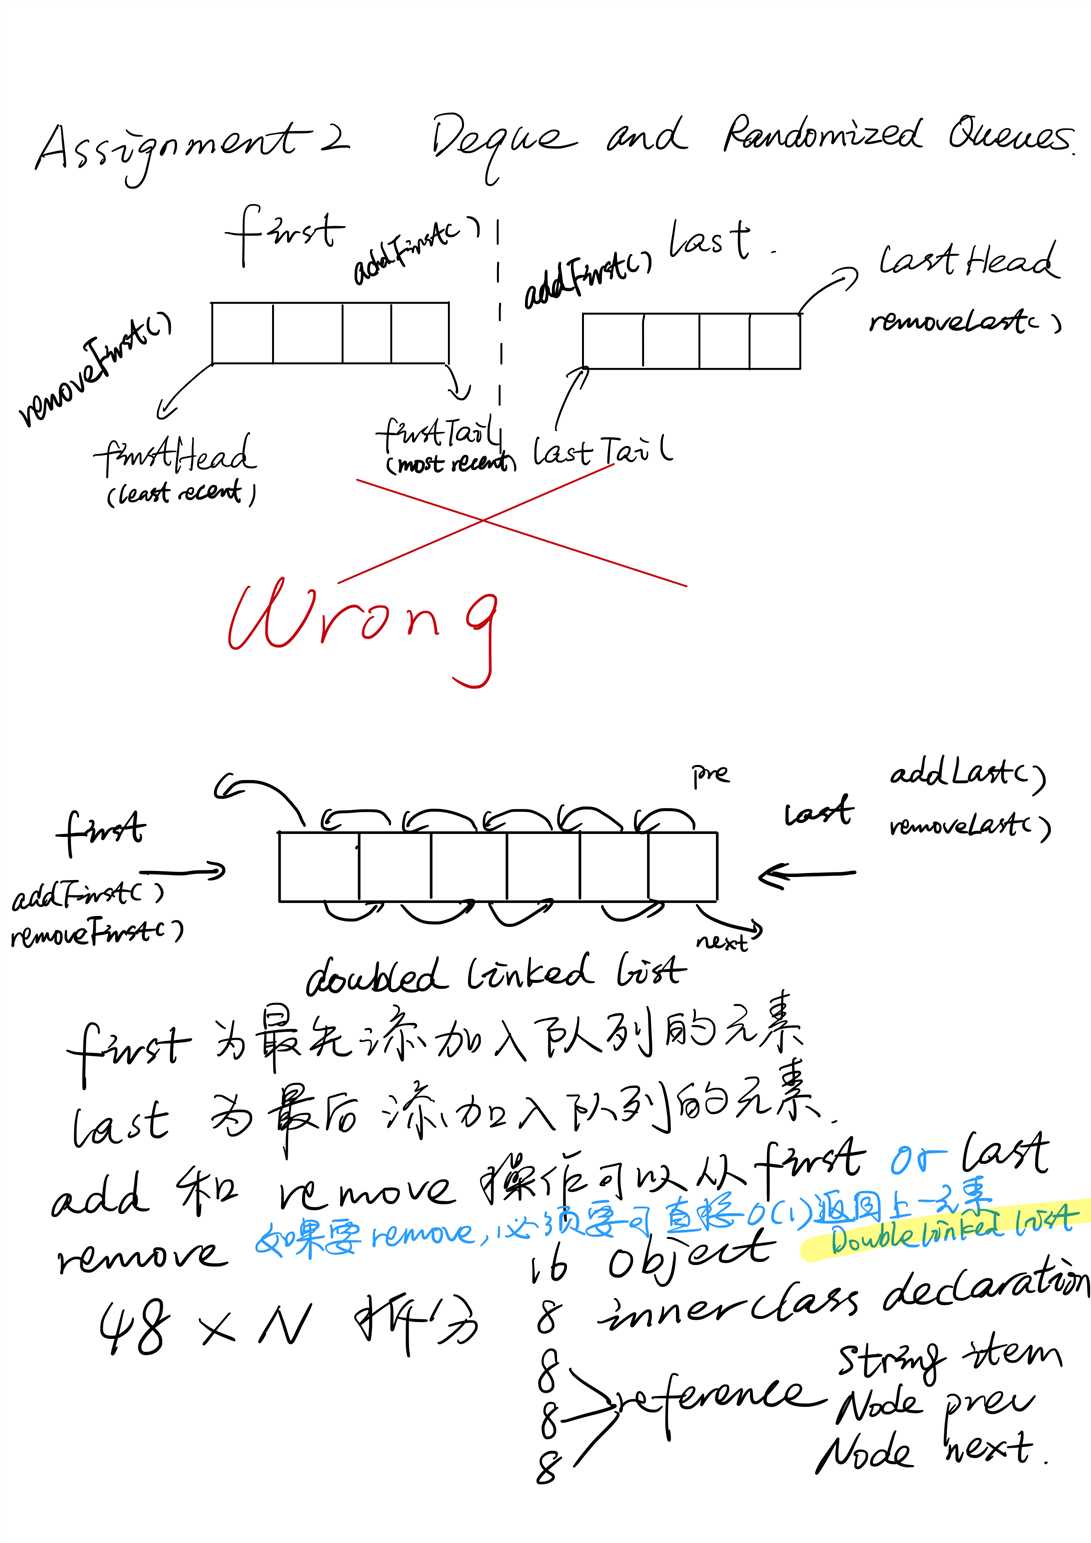 Assignment 2 Deque and Randomized Queues.
first
addFirst()
removeFirst()
firstHead
(least recent)
firstTail
(most recent)
addFirst()
last.
lastHead
removeLast()
lastTail
Wrong
pre
first
addFirst()
removeFirst()
last
addLast()
removeLast()
next
doubled linked list
first 为最先添加入队列的元素
last 为最后添加入队列的元素.
add 和 remove 操作可以从 first or last
如果要 remove, 必须要可直接 O(1) 返回上一元素
Double linked list
remove
48 × N 拆分
16 object
8 inner class declaration
8
8 reference
8
String item
Node prev
Node next.